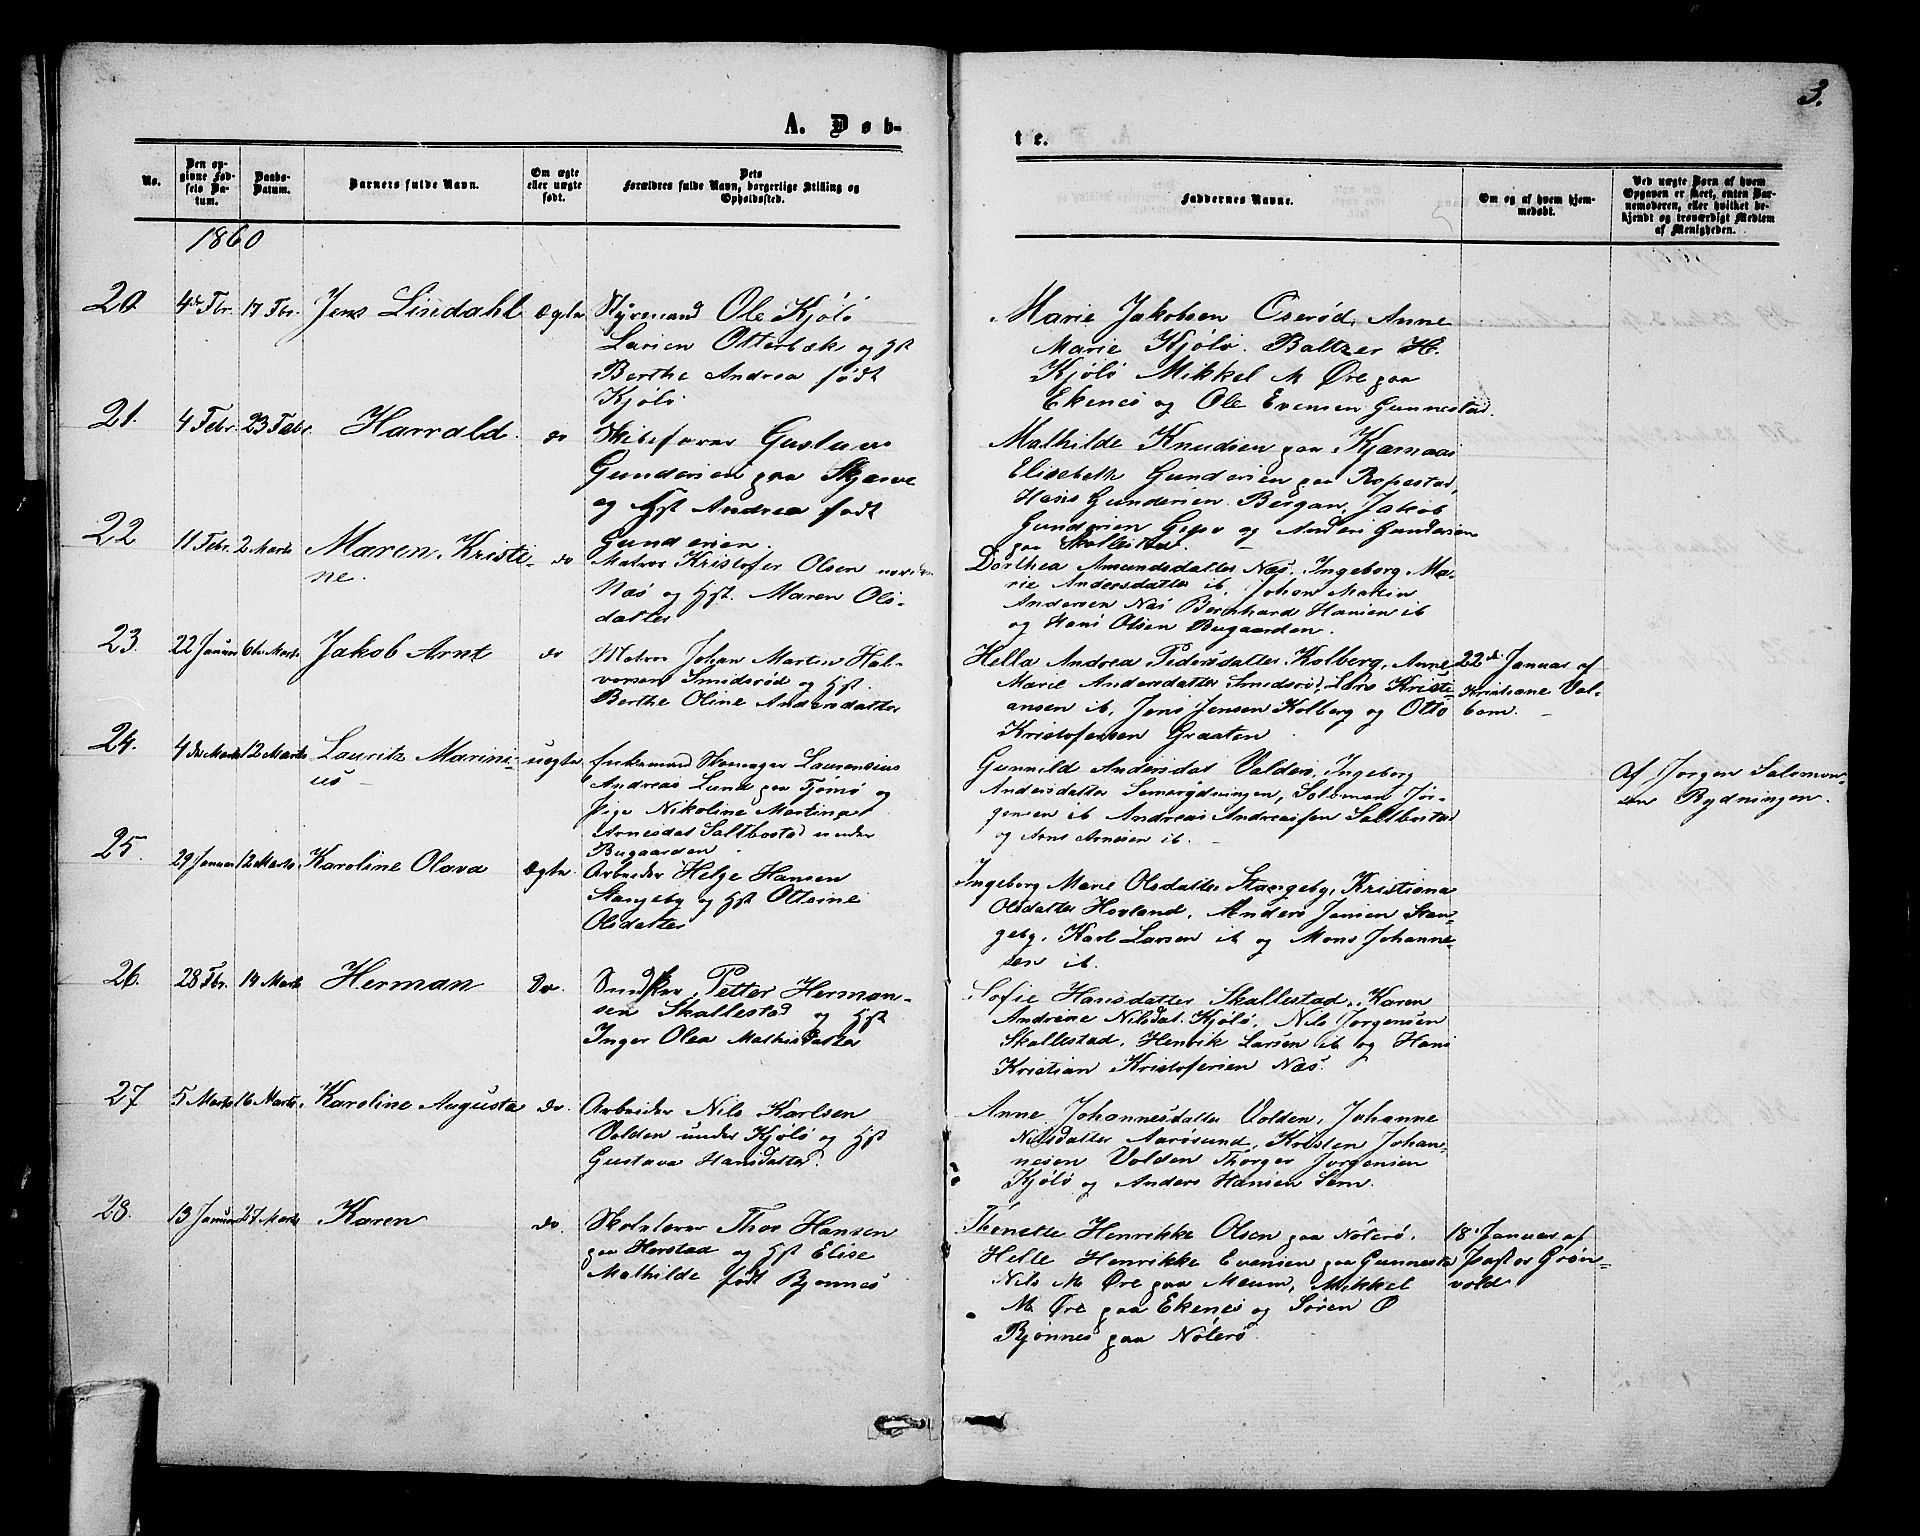 3.
A. Døb-
te.
No.
Den op-
givne Fød-
sels Da-
tum.
Daabs-
Datum.
Barnets fulde Navn.
Om ægte
eller uægte
født.
Dets
Forældres fulde Navn, borgerlige Stilling og
Opholdssted.
Faddernes Navne.
Om og af hvem hjem-
medøbt.
Ved uægte Børn af hvem
Opgaven er skeet, enten Bar-
nemoderen, eller hvilket be-
kjendt og troværdigt Medlem
af Menigheden.
1860
20. 4de Fbr. 17 Fbr. Jens Lindahl Ægte Styrmand Ole Kjølø
Larsen Otterbæk og Hst
Berthe Andrea født
Kjølø
Marie Jakobsen Oserød, Anne
Marie Kjølø. Baltzer H.
Kjølø Mikkel M Øre paa
Ekenes og Ole Evensen Gunnestad.
21. 4 Febr. 23 Febr. Harrald. do Skibsfører Gustav
Gundersen paa Skjerve
og Hst Andrea født
Gundersen.
Mathilde Knudsen paa Kjærnaas
Elisebeth Gundersen paa Ropestad,
Hans Gundersen Bergan, Jakob
Gundersen Gipø og Anders Gundersen
paa Skallestad.
22 11 Febr. 2 Marts Maren Kristi-
ne. do Matros Kristofer Olsen nordre
Næs og Hst. Maren Ols-
datter
Dorthea Amundsdatter Næs, Ingeborg Ma-
rie Andersdatter ib, Johan Martin
Andersen Næs Bernhard Hansen ib
og Hans Olsen Bugaarden.
23. 22 Januar 6te Marts Jakob Arnt do Matros Johan Martin Hal-
vorsen Smidsrød og Hst.
Berthe Oline Andersdatter
Hella Andrea Pedersdatter Kolberg, Anne
Marie Andersdatter Smidsrød, Lars Kristi-
ansen ib, Jens Jensen Kolberg og Otto
Kristofersen Graaten
22de Januar af
Kristiane Val-
bom.
24. 4de Marts 12 Marts Lauritz Marini-
us uægte Enkemand Henninger Laurensius
Andreas Lund paa Tjømø og
Pige Nikoline Martina
Arnesdat Saltbostad under
Bugaarden
Gunnild Andersdat Valdei, Ingeborg
Andersdatter Semsrydningen, Salomon Jør-
gensen ib Andreas Andreassen Saltbostad
og Arne Arnesen ib.
Af Jørgen Salomon-
sen Rydningen.
25. 29 Januar 12 Marts Karoline Olava Ægte. Arbeider Helge Hansen
Stangeby og Hst Ottoine
Olsdatter
Ingeborg Marie Olsdatter Stangeby, Kristiana
Olsdatter Hovland, Anders Jensen Stan-
geby, Karl Larsen ib og Mons Johanne-
sen ib.
26. 28 Fbr. 14 Marts Herman Do. Petter Herman-
sen Skallestad og Hst
Inger Olea Mathisdatter
Sofie Hansdatter Skallestad, Karen
Andrine Nilsdat. Kjølø, Nils Jørgensen
Skallestad, Henrik Larsen ib og Hans
Kristian Kristofersen Næs.
27 5 Marts 16 Marts. Karoline Augusta do. Arbeider Nils Karlsen
Volden under Kjølø og Hst
Gustava Hansdatter.
Anne Johannesdatter Volden, Johanne
Nilsdatter Aarøsund, Kristen Johan-
nesen Volden Thorger Jørgensen
Kjølø og Anders Hansen Sem.
28. 13 Januar 27 Marts Karen do Skolelærer Thor Hansen
paa Herstad og Hst Elise
Mathilde født Bjønnes
Thenette Henrikke Olsen paa Nøterø,
Helle Henrikke Evensen paa Gunnestad
Nils M Øre paa Meum, Mikkel
M. Øre paa Ekenes og Søren Ø
Bjønnes paa Nøterø.
18. Januar af
Pastor Grøn-
vold